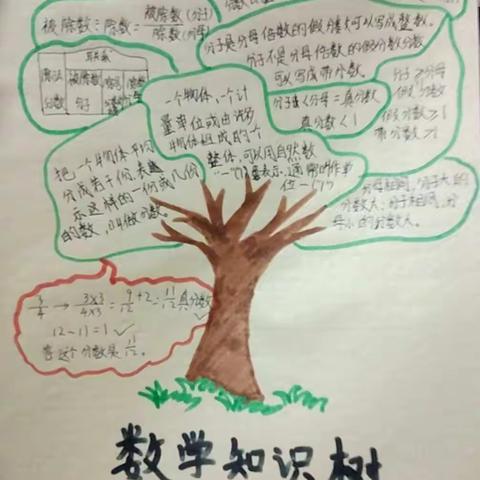 被除数÷除数=被除数(分子)/除数(分母)
联系
除法 被除数 除号 除数
分数 分子
分子是分母倍数的假分数可以写成整数。
分子不是分母倍数的假分数
可以写成带分数。
分子<分母=真分数
真分数<1
分子≥分母
假分数
假分数≥1
带分数>1
一个物体、一个计
量单位或由许多
物体组成的一个
整体,可以用自然数
“1”来表示,通常叫作单
位“1”
把一个物体平均
分成若干份,表
示这样的一份或几份
的数,叫做分数。
分母相同,分子大的
分数大,分子相同,分
母小的分数大。
3/4→3×3/4×3=9/12+2=11/12真分数
12-11=1✓
答这个分数是11/12。
数学知识树